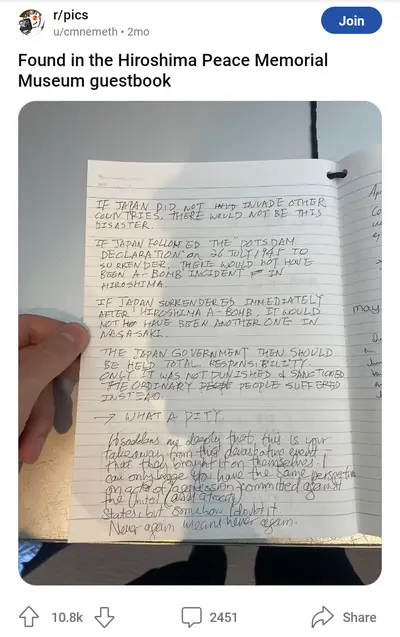 r/pics
u/cmnemeth • 2mo
Join
Found in the Hiroshima Peace Memorial
Museum guestbook
IF JAPAN DID NOT INVADE OTHER
COUNTRIES, THERE WOULD NOT BE THIS
DISASTER.
IF JAPAN FOLLOWED THE "POTSDAM
DECLARATION" on 26 JULY 1945 TO
SURRENDER, THERE WOULD NOT HAVE
BEEN A-BOMB INCIDENT IN
HIROSHIMA.
IF JAPAN SURRENDERED IMMEDIATELY
AFTER HIROSHIMA A-BOMB, IT WOULD
NOT HAVE BEEN ANOTHER ONE IN
NAGASAKI.
THE JAPAN GOVERNMENT THEN SHOULD
BE HELD TOTAL RESPONSIBILITY.
ONLY IT WAS NOT PUNISHED & SANCTIONED
THE ORDINARY PEOPLE SUFFERED
INSTEAD.
→ WHAT A PITY
It saddens me deeply that this is your
takeaway from this devastating event
that they brought it on themselves. I
can only hope you have the same perspective
on acts of aggression committed against
the United (and atrocity)
States but somehow doubt it.
Never again means never again.
may
10.8k
2451
Share